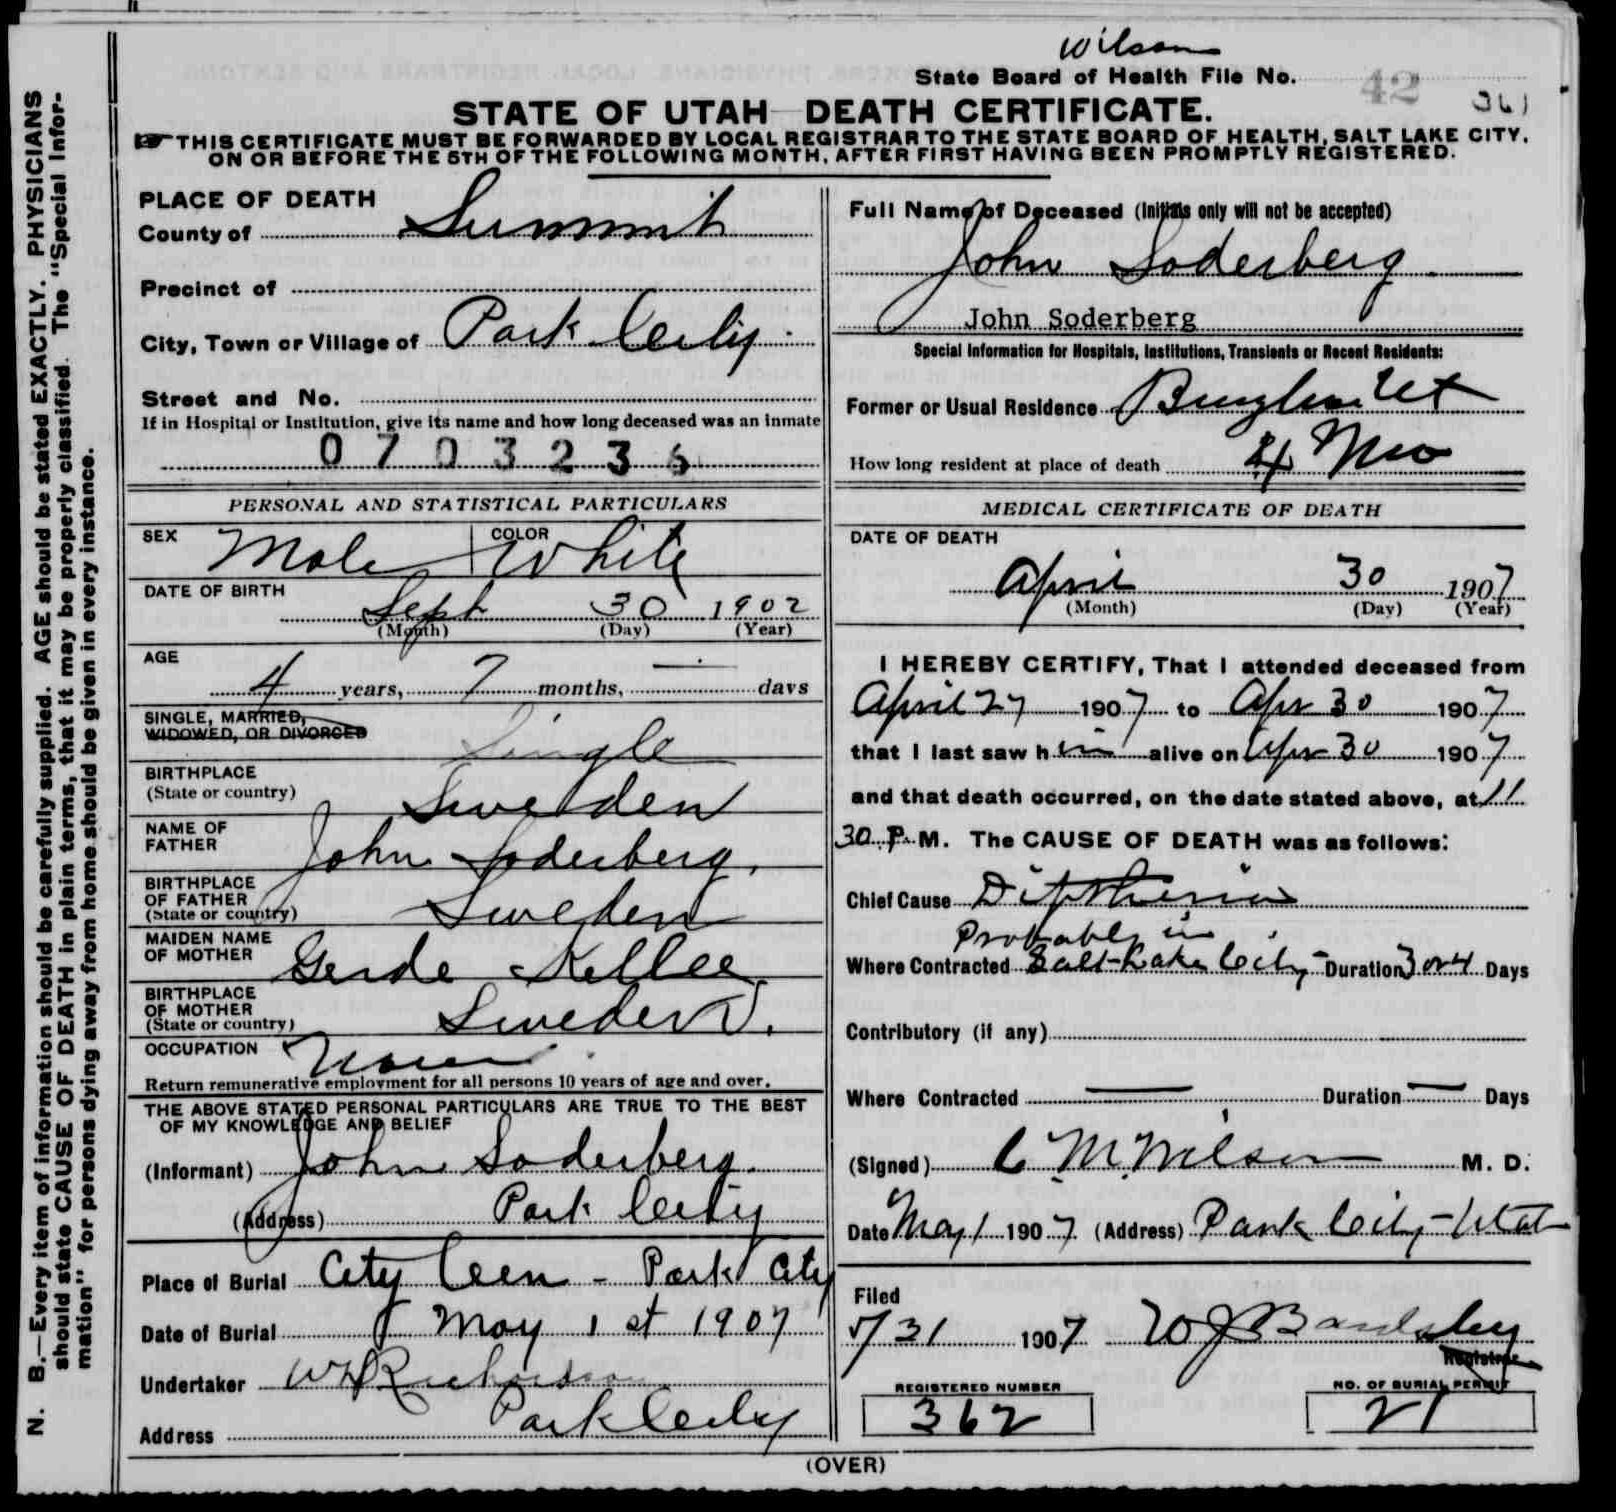 Wilson
State Board of Health File No. 42 361
STATE OF UTAH—DEATH CERTIFICATE.
THIS CERTIFICATE MUST BE FORWARDED BY LOCAL REGISTRAR TO THE STATE BOARD OF HEALTH, SALT LAKE CITY,
ON OR BEFORE THE 5TH OF THE FOLLOWING MONTH, AFTER FIRST HAVING BEEN PROMPTLY REGISTERED.
N. B.—Every item of information should be carefully supplied. AGE should be stated EXACTLY. PHYSICIANS
should state CAUSE OF DEATH in plain terms, that it may be properly classified. The "Special Infor-
mation" for persons dying away from home should be given in every instance.
PLACE OF DEATH
County of Summit
Precinct of
City, Town or Village of Park City
Street and No.
If in Hospital or Institution, give its name and how long deceased was an inmate
0703236
PERSONAL AND STATISTICAL PARTICULARS
SEX Male COLOR White
DATE OF BIRTH
Sept 30 1902
(Month) (Day) (Year)
AGE
4 years, 7 months, — days
SINGLE, MARRIED,
WIDOWED, OR DIVORCED Single
BIRTHPLACE
(State or country) Sweden
NAME OF
FATHER John Soderberg,
BIRTHPLACE
OF FATHER
(State or country) Sweden
MAIDEN NAME
OF MOTHER Kellee
BIRTHPLACE
OF MOTHER
(State or country) Sweden
OCCUPATION None
Return remunerative employment for all persons 10 years of age and over.
THE ABOVE STATED PERSONAL PARTICULARS ARE TRUE TO THE BEST
OF MY KNOWLEDGE AND BELIEF
(Informant) John Soderberg.
(Address) Park City
Place of Burial City Cem - Park City
Date of Burial May 1st 1907
Undertaker W H Richardson
Address Park City
Full Name of Deceased (Initials only will not be accepted)
John Soderberg.
John Soderberg
Special Information for Hospitals, Institutions, Transients or Recent Residents:
Former or Usual Residence Ut
How long resident at place of death 4 Mo
MEDICAL CERTIFICATE OF DEATH
DATE OF DEATH
April 30 1907
(Month) (Day) (Year)
I HEREBY CERTIFY, That I attended deceased from
April 27 1907 to Apr 30 1907
that I last saw h im alive on Apr 30 1907
and that death occurred, on the date stated above, at 11
30 P. M. The CAUSE OF DEATH was as follows:
Chief Cause Diptheria
Probably in
Where Contracted Salt Lake City - Duration 3 or 4 Days
Contributory (if any)
Where Contracted — Duration — Days
(Signed) C M Wilson M. D.
Date May 1 1907 (Address) Park City - Utah
Filed
5/31 1907 W J Bardsley
Registrar
REGISTERED NUMBER
362
NO. OF BURIAL PERMIT
21
(OVER)